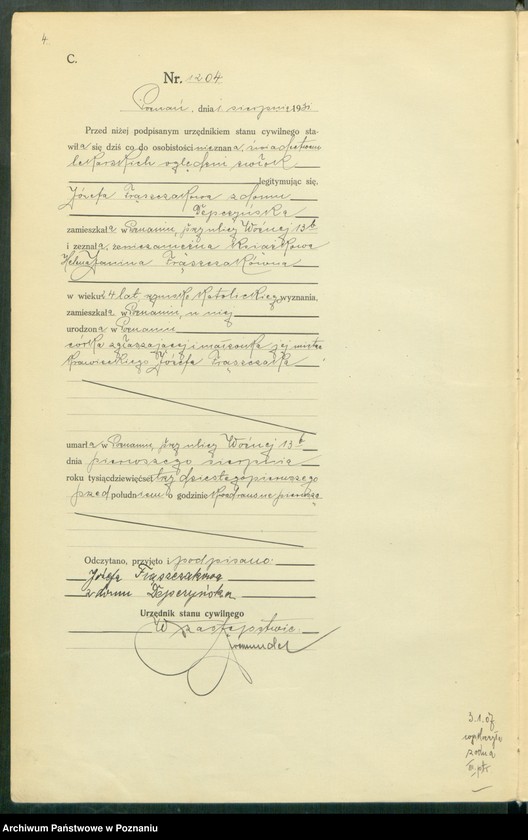 4
C.
Nr. 1204
Poznań, dnia 1 sierpnia 1931
Przed niżej podpisanym urzędnikiem stanu cywilnego sta-
wiła się dziś co do osobistości nieznana, świadectwem
lekarskich oględzin zwłok
legitymując się.
Józefa Frąszczakowa z domu
zamieszkała w Poznaniu, przy ulicy Woźnej 13b
i zeznała, że niezamężna
Helena Janina Frąszczakówna
w wieku 4 lat, rzymsko katolickiego wyznania,
zamieszkała w Poznaniu, u niej
urodzona w Poznaniu
córka zgłaszającej i małżonka jej mistrza
krawieckiego Józefa Frąszczaka
umarła w Poznaniu, przy ulicy Woźnej 13b
dnia pierwszego sierpnia
roku tysiącdziewięćset trzydziestego pierwszego
przed południem o godzinie kwadrans na pierwszą
Odczytano, przyjęto i podpisano
Józefa Frąszczakowa
z domu
Urzędnik stanu cywilnego
W zastępstwie
3.1.07
Archiwum Państwowe w Poznaniu